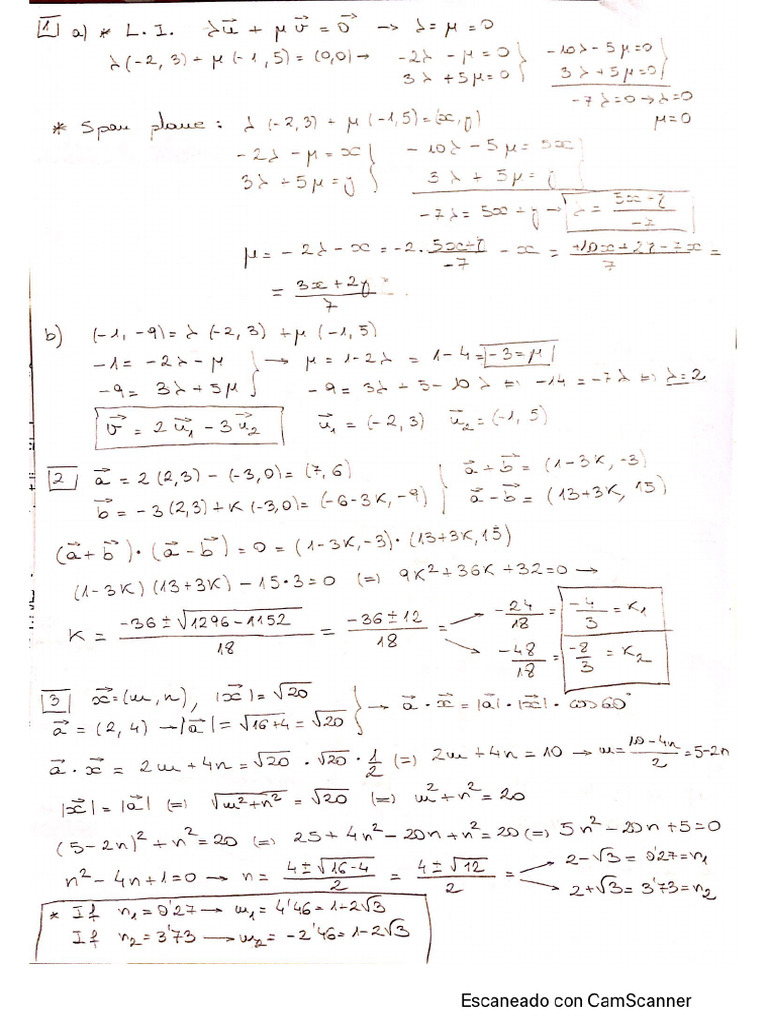 1 a) * L. I. λu⃗ + μv⃗ = 0⃗ → λ = μ = 0
λ(-2, 3) + μ(-1, 5) = (0,0) → -2λ - μ = 0 } -10λ - 5μ = 0 }
3λ + 5μ = 0 } 3λ + 5μ = 0 }
-7λ = 0 → λ = 0
μ = 0
* Span plane: λ(-2, 3) + μ(-1, 5) = (x, y)
-2λ - μ = x } -10λ - 5μ = 5x }
3λ + 5μ = y } 3λ + 5μ = y }
-7λ = 5x + y → λ = (5x + y)/-7
μ = -2λ - x = -2 · (5x + y)/-7 - x = (+10x + 2y - 7x)/7 =
= (3x + 2y)/7
b) (-1, -9) = λ(-2, 3) + μ(-1, 5)
-1 = -2λ - μ } → μ = 1 - 2λ = 1 - 4 = -3 = μ
-9 = 3λ + 5μ } -9 = 3λ + 5 - 10λ ⇔ -14 = -7λ ⇔ λ = 2
v⃗ = 2u⃗₁ - 3u⃗₂ u⃗₁ = (-2, 3) u⃗₂ = (-1, 5)
2 a⃗ = 2(2,3) - (-3,0) = (7, 6) } a⃗ + b⃗ = (1-3K, -3)
b⃗ = -3(2,3) + K(-3,0) = (-6-3K, -9) } a⃗ - b⃗ = (13+3K, 15)
(a⃗ + b⃗) · (a⃗ - b⃗) = 0 = (1-3K, -3) · (13+3K, 15)
(1-3K)(13+3K) - 15·3 = 0 (=) 9K² + 36K + 32 = 0 →
K = (-36 ± √(1296 - 1152))/18 = (-36 ± 12)/18 = → -24/18 = -4/3 = K₁
→ -48/18 = -8/3 = K₂
3 x⃗ = (m, n), |x⃗| = √20 } → a⃗ · x⃗ = |a⃗| · |x⃗| · cos 60°
a⃗ = (2, 4) → |a⃗| = √(16+4) = √20 }
a⃗ · x⃗ = 2m + 4n = √20 · √20 · 1/2 (=) 2m + 4n = 10 → m = (10 - 4n)/2 = 5-2n
|x⃗| = |a⃗| (=) √(m² + n²) = √20 (=) m² + n² = 20
(5 - 2n)² + n² = 20 (=) 25 + 4n² - 20n + n² = 20 (=) 5n² - 20n + 5 = 0
n² - 4n + 1 = 0 → n = (4 ± √(16-4))/2 = (4 ± √12)/2 = → 2 - √3 = 0'27 = n₁
→ 2 + √3 = 3'73 = n₂
* If n₁ = 0'27 → m₁ = 4'46 = 1 + 2√3
If n₂ = 3'73 → m₂ = -2'46 = 1 - 2√3
Escaneado con CamScanner